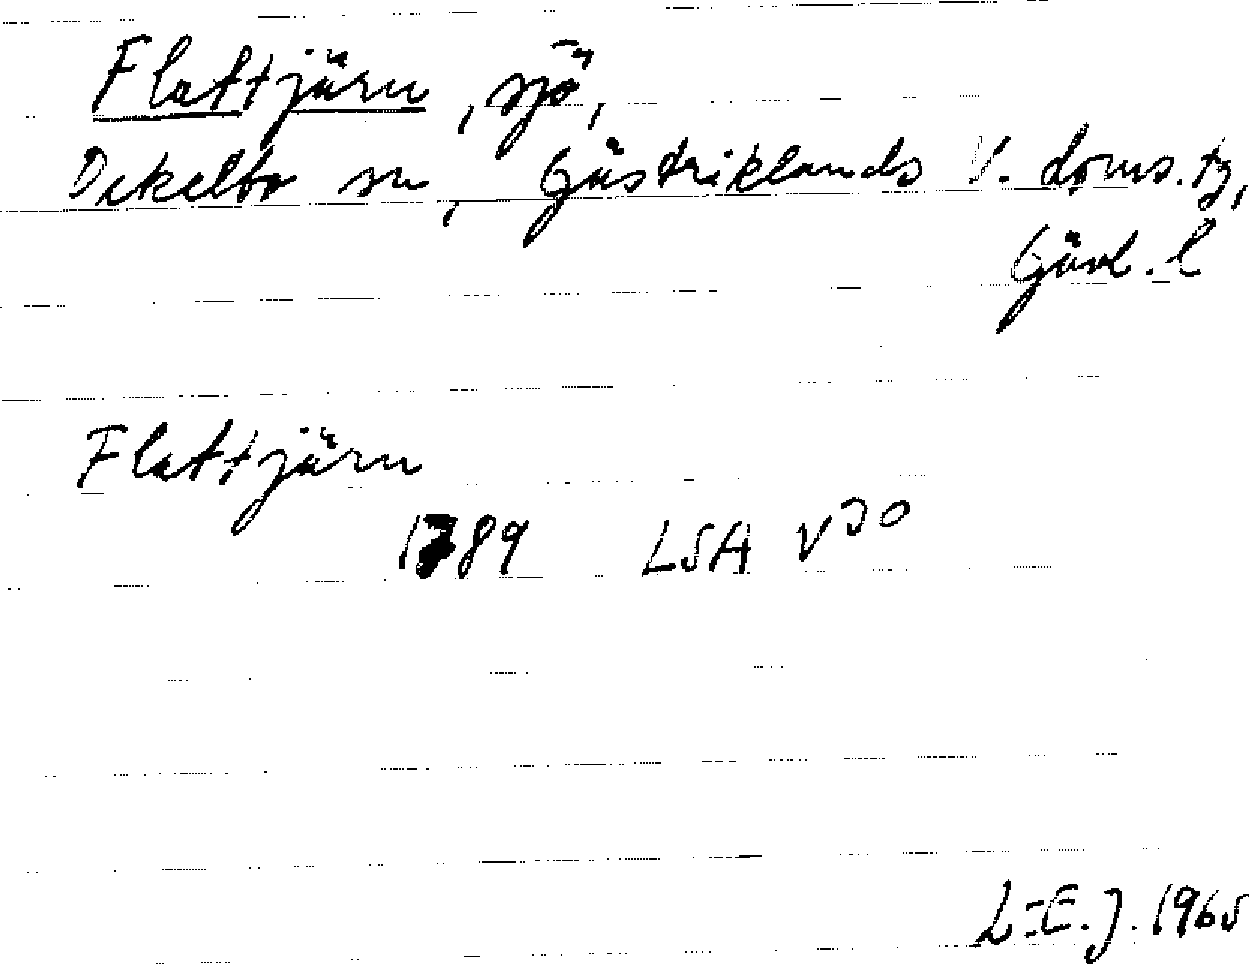 Flattjärn, sjö,
Ockelbo sn, Gästriklands V. doms. tg,
Gävl. l
Flattjärn
1789 LSA V30
L-E. J. 1965